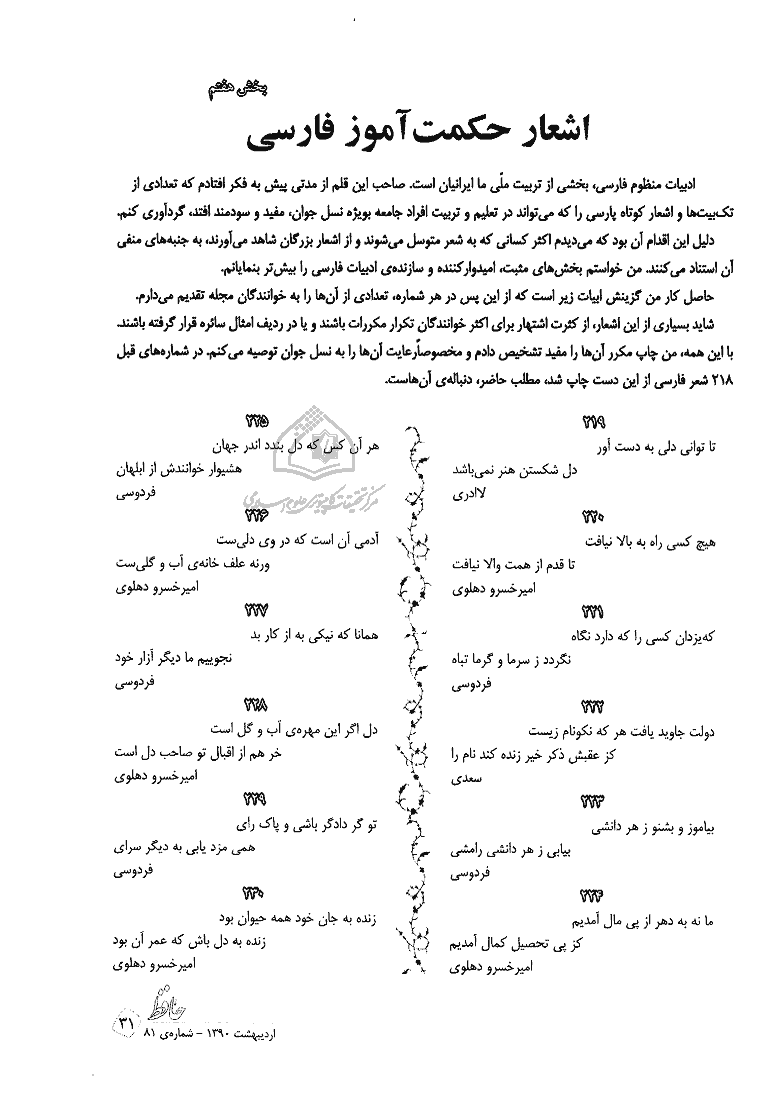 بخش هفتم
اشعار حکمت‌آموز فارسی
ادبیات منظوم فارسی، بخشی از تربیت ملّی ما ایرانیان است. صاحب این قلم از مدتی پیش به فکر افتادم که تعدادی از
تک‌بیت‌ها و اشعار کوتاه پارسی را که می‌تواند در تعلیم و تربیت افراد جامعه بویژه نسل جوان، مفید و سودمند افتد، گردآوری کنم.
دلیل این اقدام آن بود که می‌دیدم اکثر کسانی که به شعر متوسل می‌شوند و از اشعار بزرگان شاهد می‌آورند، به جنبه‌های منفی
آن استناد می‌کنند. من خواستم بخش‌های مثبت، امیدوارکننده و سازنده‌ی ادبیات فارسی را بیش‌تر بنمایانم.
حاصل کار من گزینش ابیات زیر است که از این پس در هر شماره، تعدادی از آن‌ها را به خوانندگان مجله تقدیم می‌دارم.
شاید بسیاری از این اشعار، از کثرت اشتهار برای اکثر خوانندگان تکرار مکررات باشند و یا در ردیف امثال سائره قرار گرفته باشند.
با این همه، من چاپ مکرر آن‌ها را مفید تشخیص دادم و مخصوصاً رعایت آن‌ها را به نسل جوان توصیه می‌کنم. در شماره‌های قبل
۲۱۸ شعر فارسی از این دست چاپ شد، مطلب حاضر، دنباله‌ی آن‌هاست.
۲۱۹
تا توانی دلی به دست آور
دل شکستن هنر نمی‌باشد
لاادری
۲۲۰
هیچ کسی راه به بالا نیافت
تا قدم از همت والا نیافت
امیرخسرو دهلوی
۲۲۱
که‌یزدان کسی را که دارد نگاه
نگردد ز سرما و گرما تباه
فردوسی
۲۲۲
دولت جاوید یافت هر که نکونام زیست
کز عقبش ذکر خیر زنده کند نام را
سعدی
۲۲۳
بیاموز و بشنو ز هر دانشی
بیابی ز هر دانشی رامشی
فردوسی
۲۲۴
ما نه به دهر از پی مال آمدیم
کز پی تحصیل کمال آمدیم
امیرخسرو دهلوی
۲۲۵
هر آن کس که دل بندد اندر جهان
هشیوار خوانندش از ابلهان
فردوسی
مرکز تحقیقات کامپیوتری علوم اسلامی
۲۲۶
آدمی آن است که در وی دلی‌ست
ورنه علف خانه‌ی آب و گلی‌ست
امیرخسرو دهلوی
۲۲۷
همانا که نیکی به از کار بد
نجوییم ما دیگر آزار خود
فردوسی
۲۲۸
دل اگر این مهره‌ی آب و گل است
خر هم از اقبال تو صاحب دل است
امیرخسرو دهلوی
۲۲۹
تو گر دادگر باشی و پاک رای
همی مزد یابی به دیگر سرای
فردوسی
۲۳۰
زنده به جان خود همه حیوان بود
زنده به دل باش که عمر آن بود
امیرخسرو دهلوی
حافظ
۳۱
اردیبهشت ۱۳۹۰ - شماره‌ی ۸۱